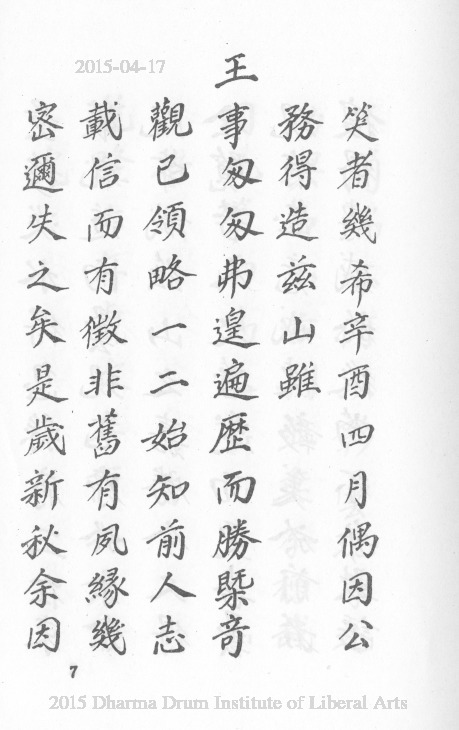 2015-04-17
笑者幾希辛酉四月偶因公
務得造兹山雖
王
事匆匆弗遑遍歷而勝槩奇
觀已領略一二始知前人志
載信而有徵非舊有夙緣幾
密邇失之矣是歲新秋余因
7
2015 Dharma Drum Institute of Liberal Arts